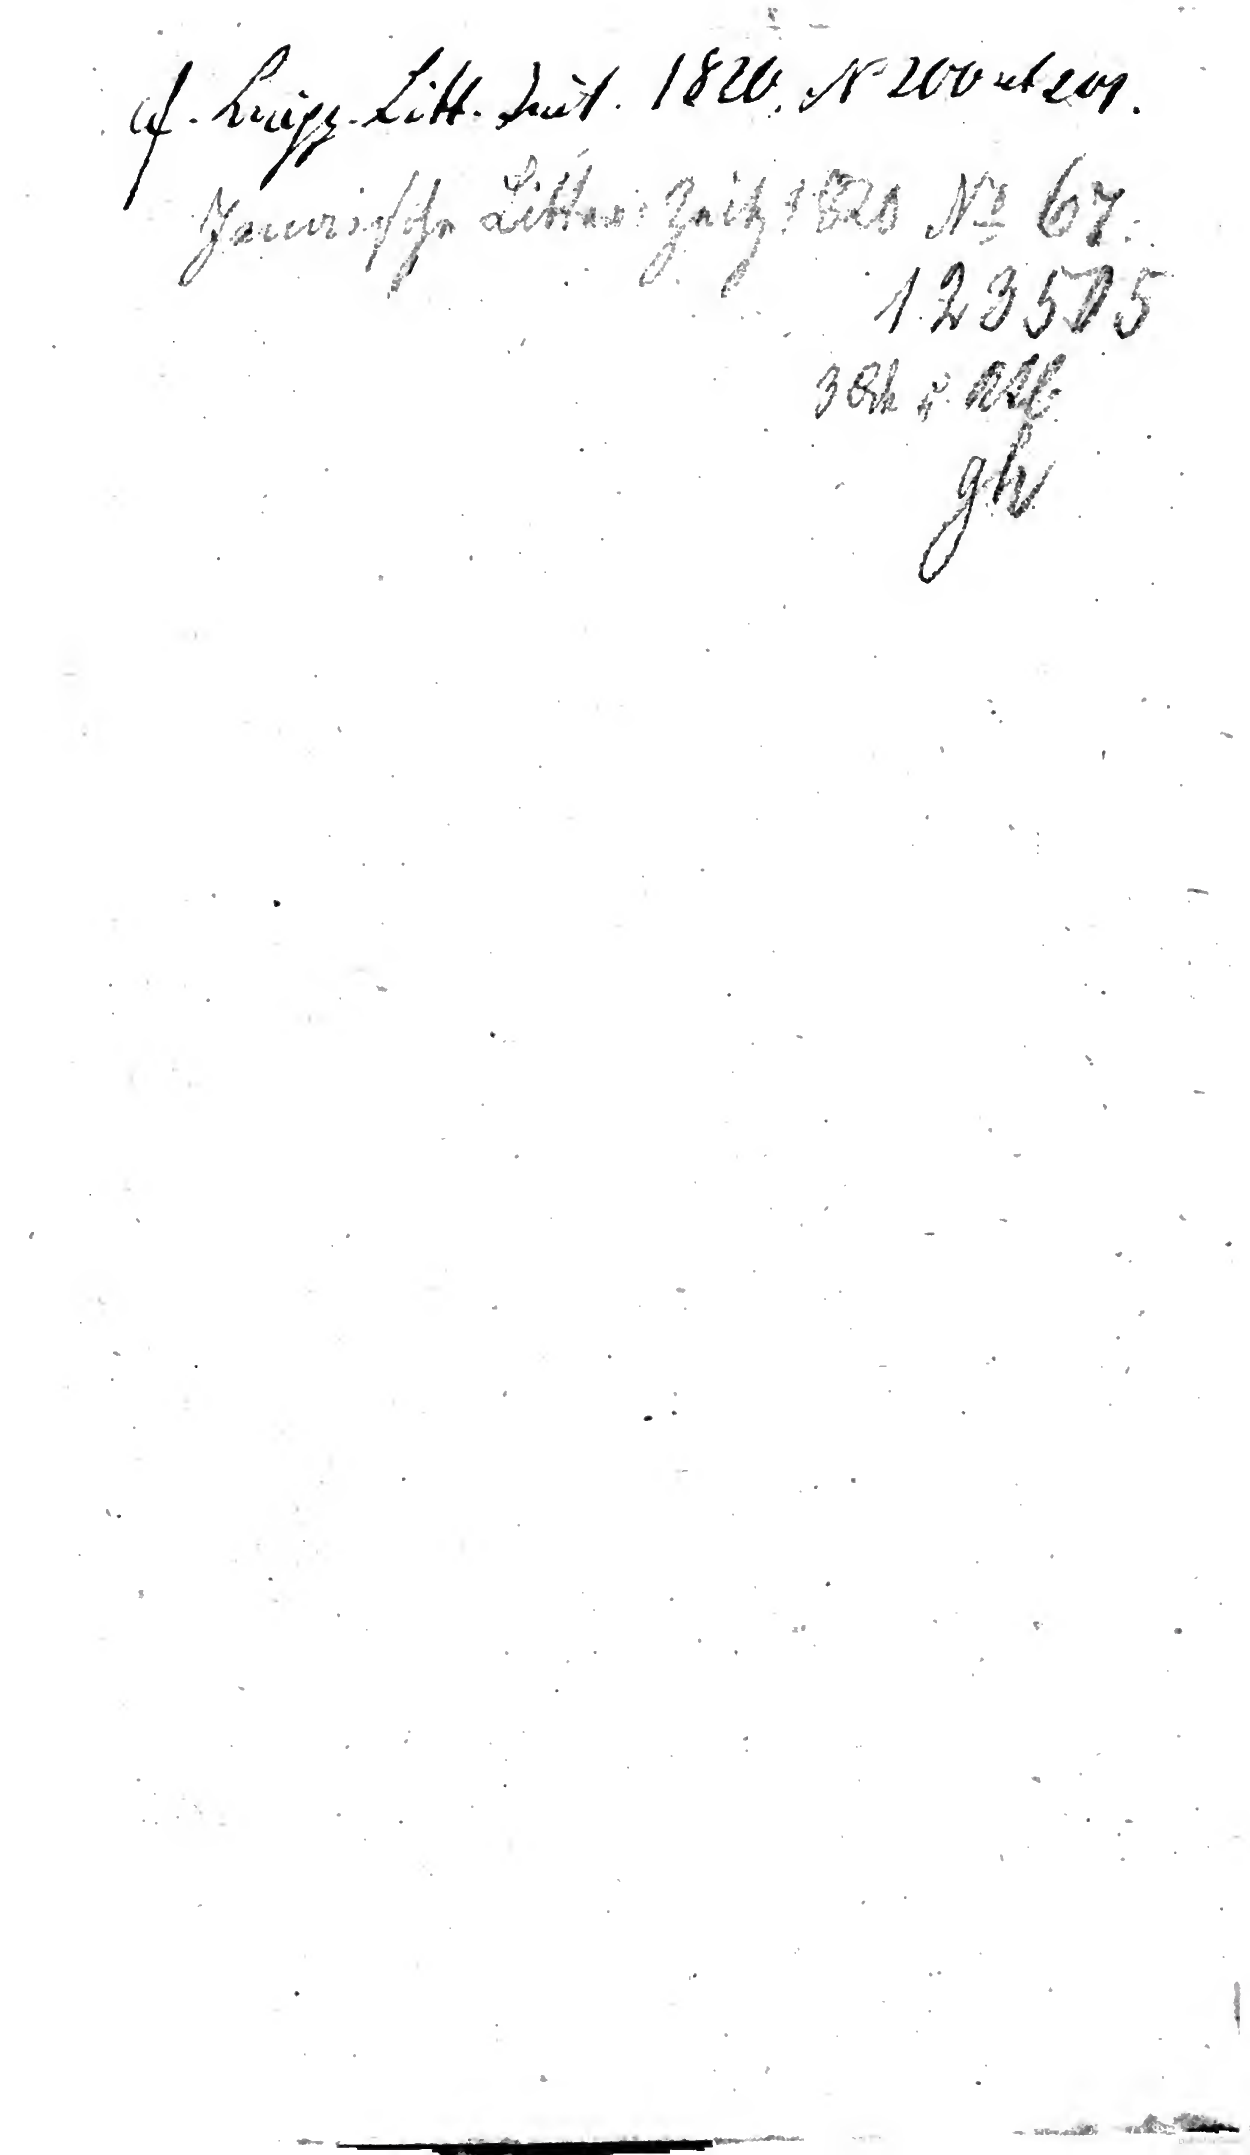 cf. Leipz. Litt. Zeit. 1820. N 200 et 201.
Jenaische Litter: Zeitg 1820 No 67.
123575
gh